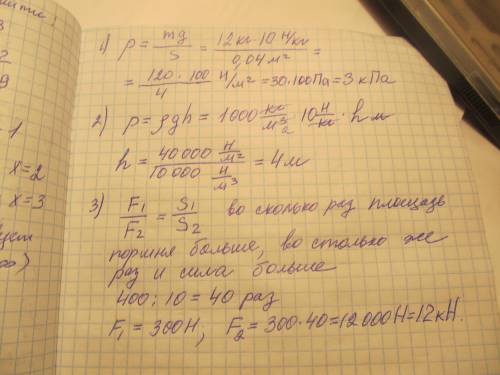 1) p = mg/S = 12кг·10 Н/кг / 0,04 м² =
= 120·100/4 Н/м² = 30·100Па = 3 кПа
2) p = ρgh = 1000 кг/м³ 10 Н/кг · h м
h = 40000 Н/м² / 10000 Н/м³ = 4м
3) F₁/F₂ = S₁/S₂ во сколько раз площадь
поршня больше, во столько же
раз и сила больше
400 : 10 = 40 раз
F₁ = 300Н; F₂ = 300·40 = 12000Н = 12кН.
x=2
x=3